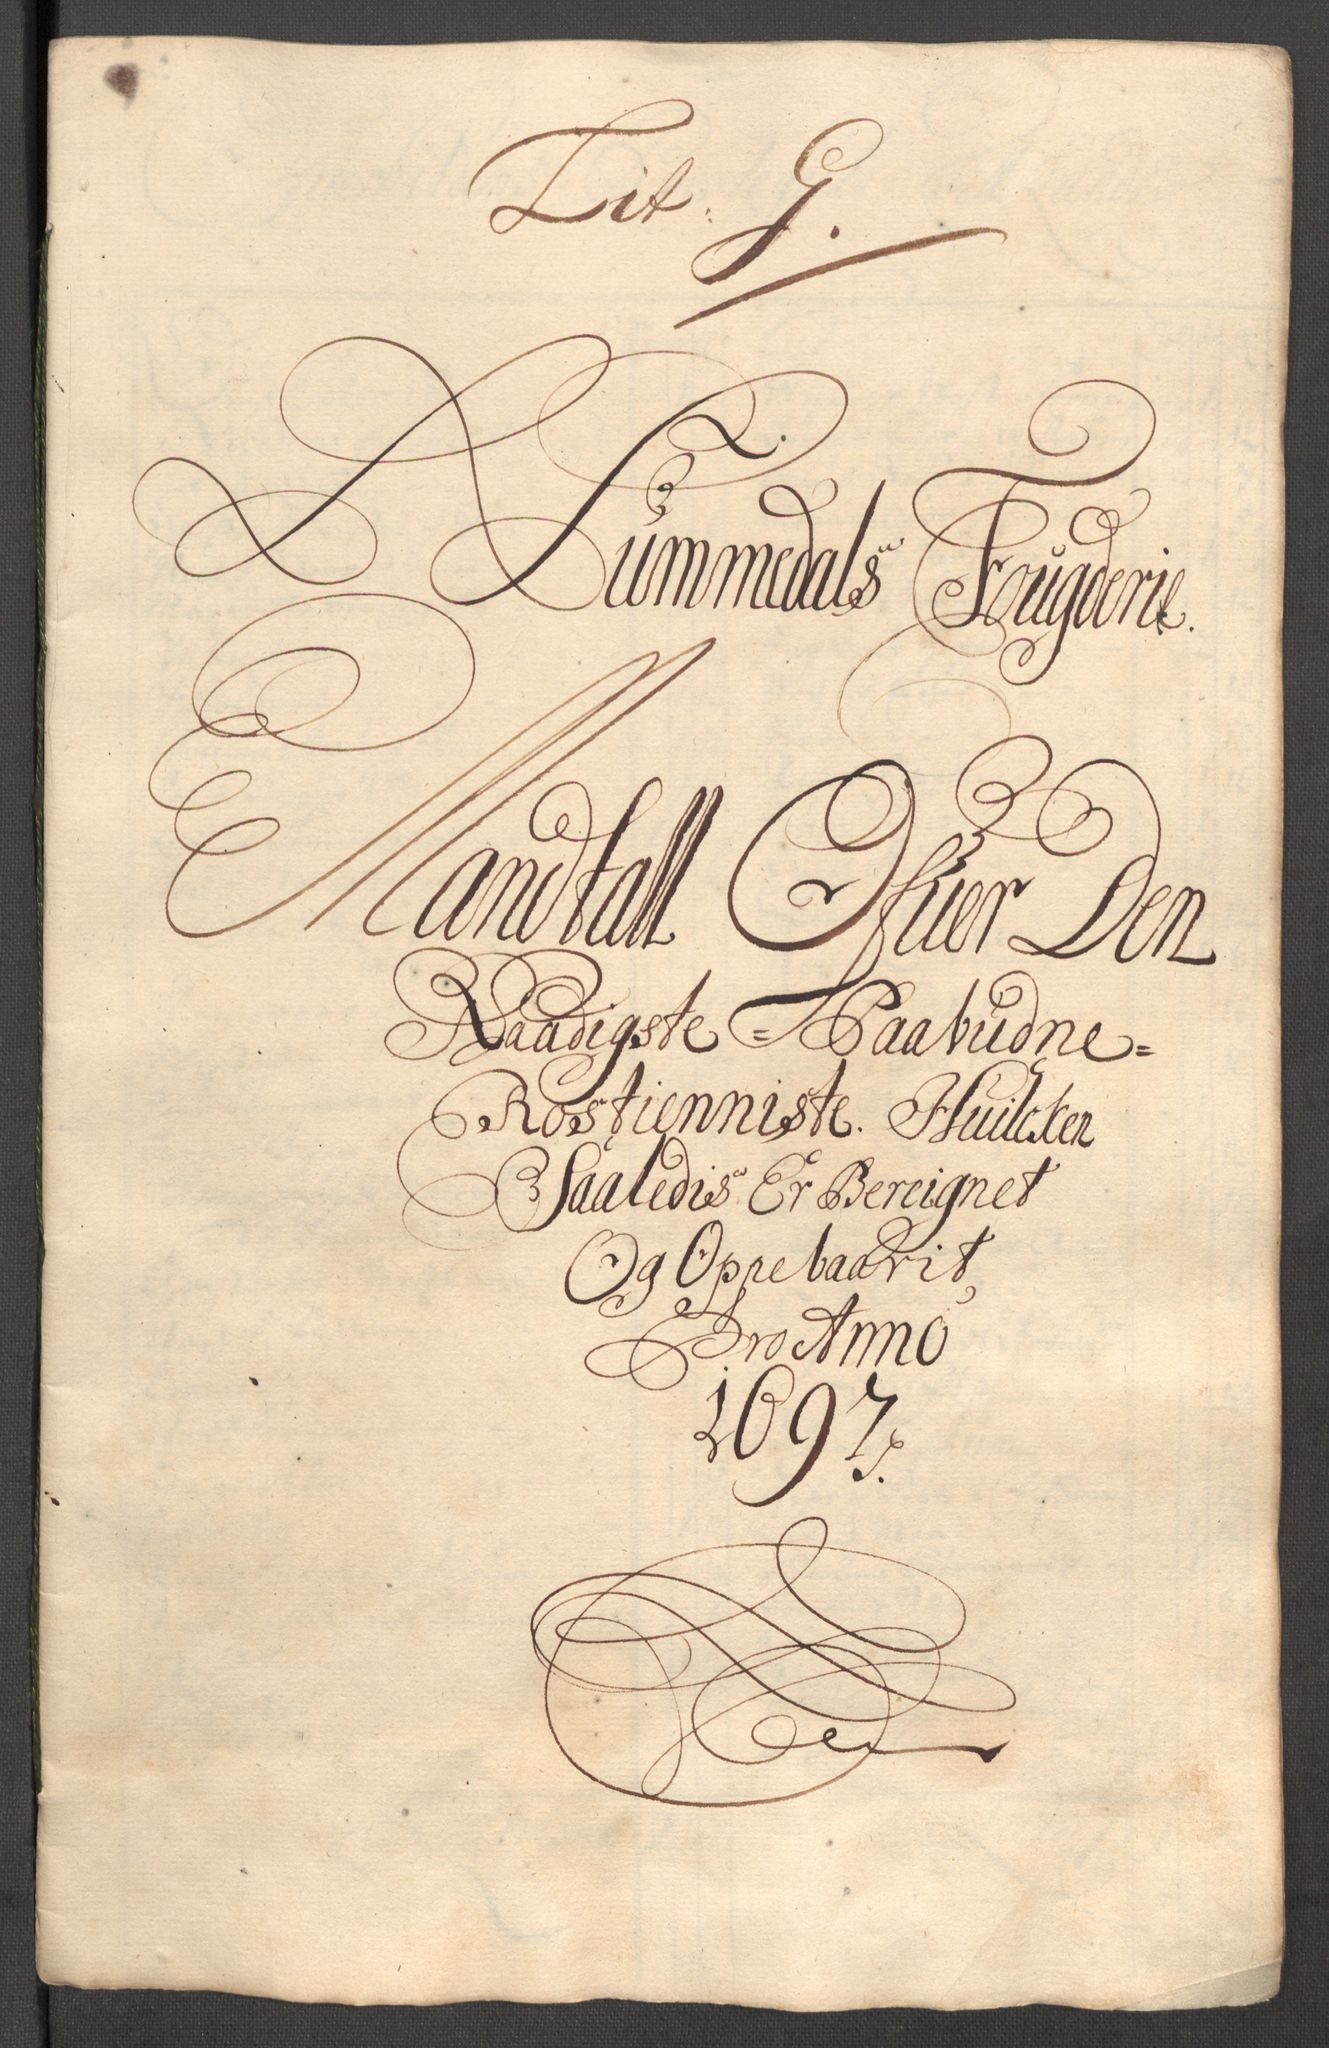 Lit. G.
Nummedals Fougderie.
Mandtall Ofuer Den
Naadigste = Paabudne =
Rostienniste. Huilcken
Saaledis Er Bereignet
Og Oppebaarit
Pro Anno
1697.